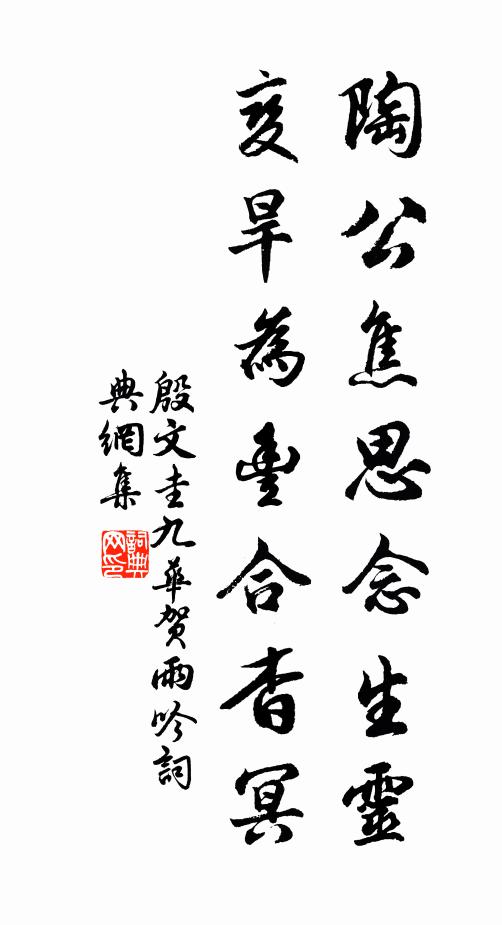 陶公焦思念生靈
变旱為豐合杳冥
殷文圭九華賀雨吟詞
典網集
詞典网印